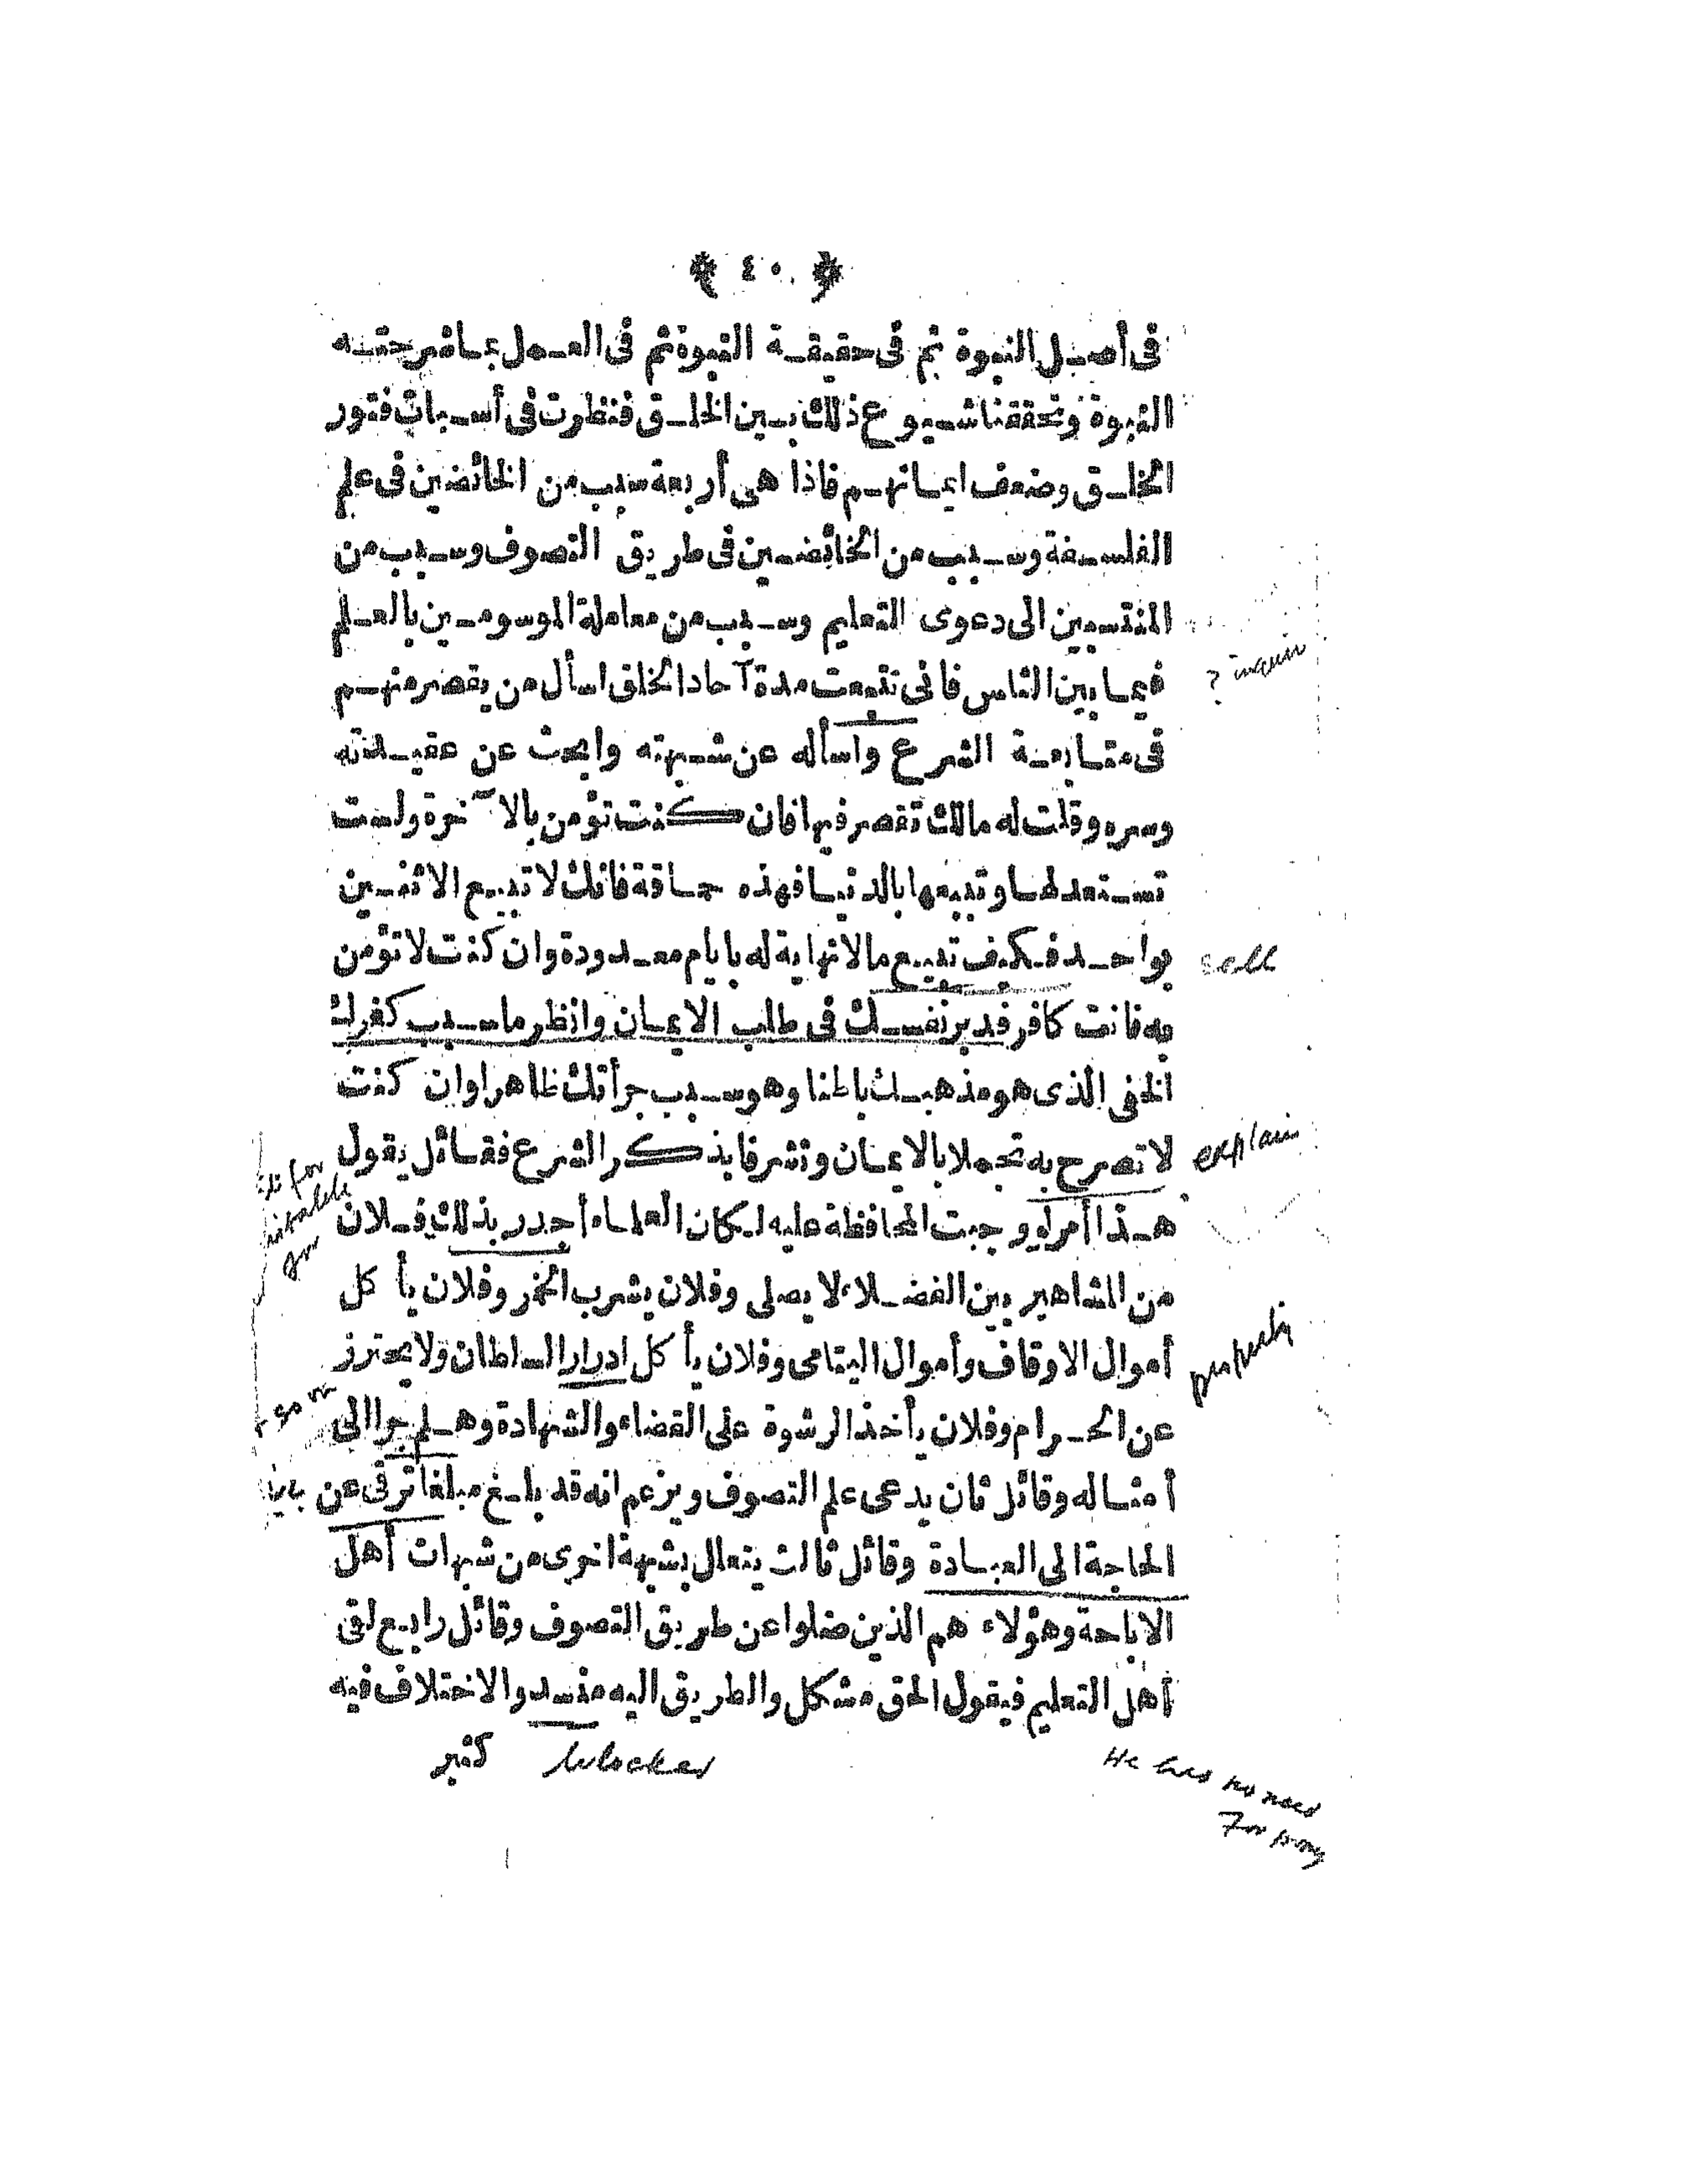 ﴿ ٤٠ ﴾
فى أصل النبوة ثم فى حقيقة النبوة ثم فى العمل بما شرحته
النبوة وتحققنا شيوع ذلك بين الخلق فنظرت فى أسباب فتور
الخلق وضعف ايمانهم فاذا هى أربعة سبب من الخائضين فى علم
الفلسفة وسبب من الخائضين فى طريق التصوف وسبب من
المنتسبين الى دعوى التعليم وسبب من معاملة الموسومين بالعلم
فيما بين الناس فانى تتبعت مدة آحاد الخلق اسأل من يقصر منهم
? inquire
فى متابعة الشرع واسأله عن شبهته وابحث عن عقيدته
وسره وقلت له مالك تقصر فيها فان كنت تؤمن بالآخرة ولست
تستعد لها وتبيعها بالدنيا فهذه حماقة فانك لا تبيع الاثنين
بواحد فكيف تبيع مالا نهاية له بايام معدودة وان كنت لا تؤمن
sell
به فانت كافر فدبر نفسك فى طلب الايمان وانظر ما سبب كفرك
الخفى الذى هو مذهبك باطنا وهو سبب جرأتك ظاهرا وان كنت
لا تصرح به تجملا بالايمان وتشرفا بذكر الشرع فقائل يقول
explain
هذا أمر لو وجبت المحافظة عليه لكان العلماء أجدر بذلك ففلان
for
من المشاهير بين الفضلاء لا يصلى وفلان يشرب الخمر وفلان يأكل
أموال الاوقاف وأموال اليتامى وفلان يأكل ادرار السلطان ولا يحترز
property
عن الحرام وفلان يأخذ الرشوة على القضاء والشهادة وهلم جرا الى
so on
أمثاله وقائل ثان يدعى علم التصوف ويزعم انه قد بلغ مبلغا ترقى عن
الحاجة الى العبادة وقائل ثالث يتعلل بشبهة اخرى من شبهات أهل
الاباحة وهؤلاء هم الذين ضلوا عن طريق التصوف وقائل رابع لقى
أهل التعليم فيقول الحق مشكل والطريق اليه منسد والاختلاف فيه
كثير
blocked
He has no need
For